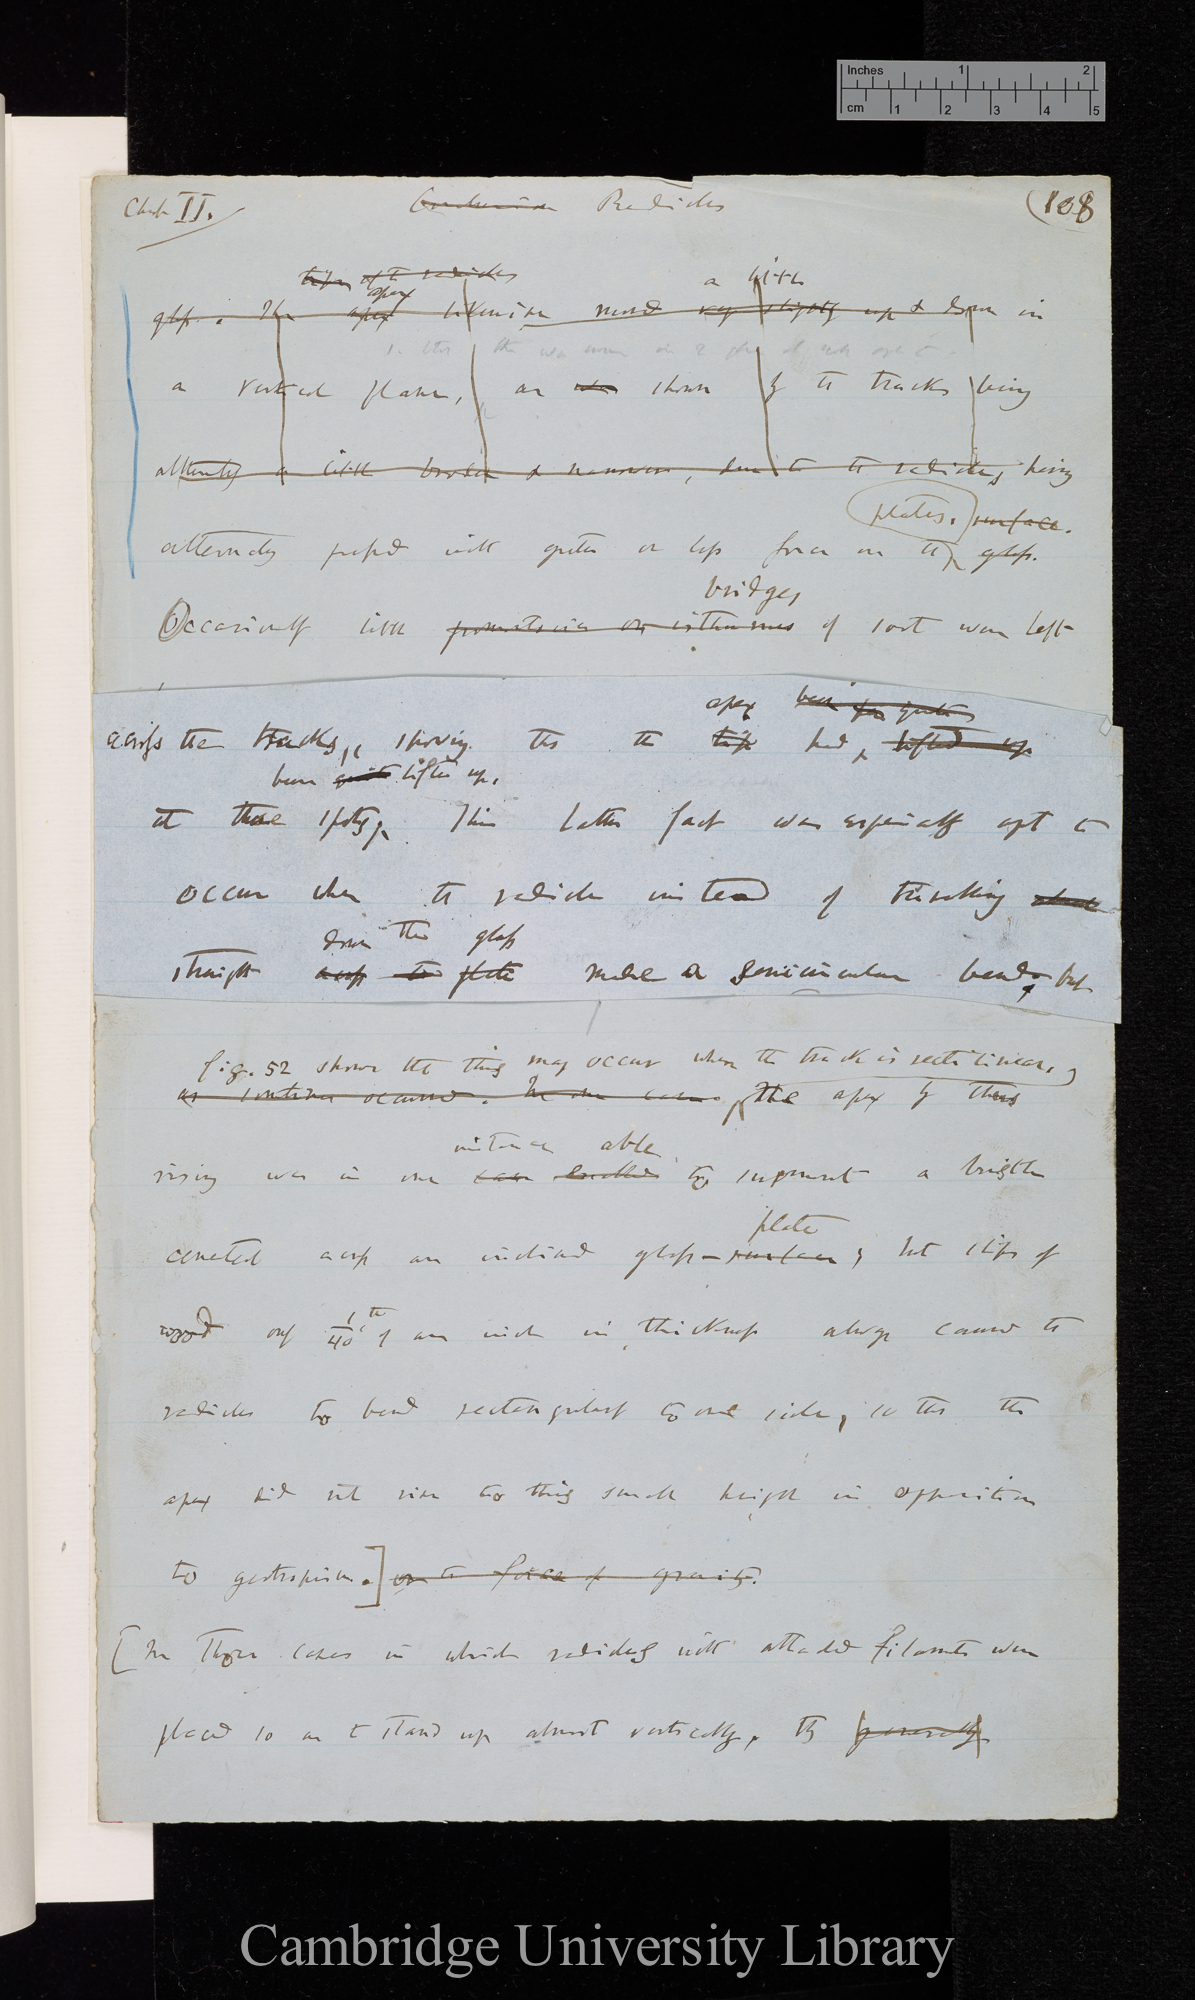 Inches 1 2
cm 1 2 3 4 5
Chap II. Radicles (108
tips of the radicles
apex a little
glass. The apex likewise moved very slightly up & down in
a vertical plane, as shown by the tracks being
alternately a little broader & narrower, due to the radicles being
plates. surface.
alternately pressed with greater or less force on the glass.
bridges
Occasionally little promontories or isthmuses of soot were left
apex been
across the tracks, showing that the tip had lifted up
been quite lifted up.
at these spots; This latter fact was especially apt to
occur when the radicle instead of travelling
down the glass
straight across the plate made a semicircular bend, but
fig. 52 shows that this may occur when the track is rectilinear.
as sometimes occurred. In one case, The apex by thus
instance able
rising was in one case enabled to surmount a bristle
plate
cemented across an inclined glass-surface; but slips of
wood only 1/40th of an inch in thickness always caused the
radicles to bend rectangularly to one side, so that the
apex did not rise to this small height in opposition
to geotropism.] or to force of gravity.
[In those cases in which radicles with attached filaments were
placed so as to stand up almost vertically, they generally
Cambridge University Library